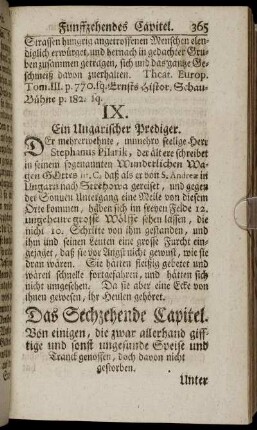 Funffzehendes Capitel. 365
Strassen hungrig angetroffenen Menschen elen-
diglich erwürget, und hernach in gedachter Gru-
ben zusammen getragen, sich und das gantze Ge-
schmeiß davon zuerhalten. Theat. Europ.
Tom. III. p. 770. sq. Ernsts Histor. Schau-
Bühne p. 182. sq.
IX.
Ein Ungarischer Prediger.
DEr mehrerwehnte, nunmehro seelige Herr
Stephanus Pilarik, der ältere schreibet
in seinem sogenannten Wunderlichen Wa-
gen GOttes m. C. daß als er von S. Andreæ in
Ungarn nach Strehowa gereiset, und gegen
der Sonnen Untergang eine Meile von diesem
Orte kommen, haben sich im freyen Felde 12.
ungeheure grosse Wölffe sehen lassen, die
nicht 10. Schritte von ihm gestanden, und
ihm und seinen Leuten eine grosse Furcht ein-
gejaget, daß sie vor Angst nicht gewust, wie sie
dran wären. Sie hätten fleißig gebetet und
wären schnelle fortgefahren, und hätten sich
nicht umgesehen. Da sie aber eine Ecke von
ihnen gewesen, ihr Heulen gehöret.
Das Sechzehende Capitel.
Von einigen, die zwar allerhand giff-
tige und sonst ungesunde Speise und
Tranck genossen, doch davon nicht
gestorben.
Unter